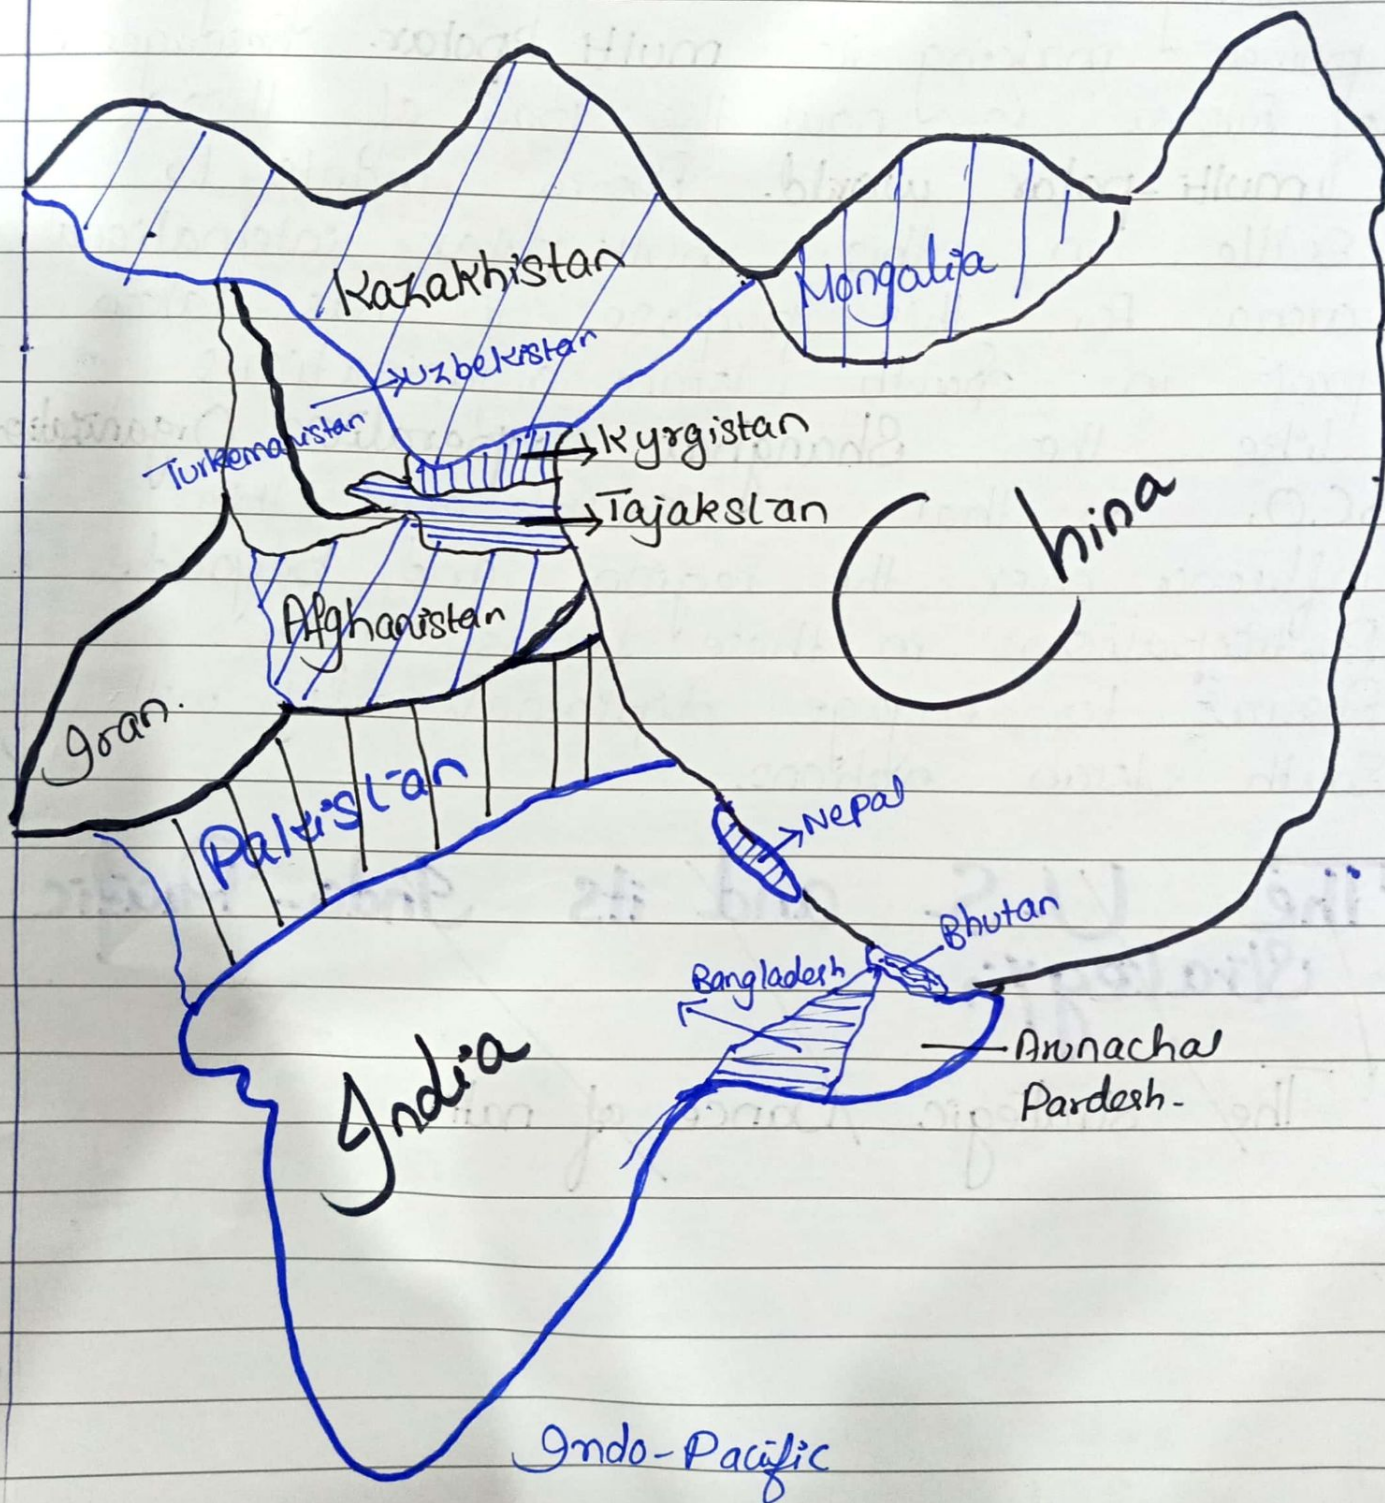 Kazakhistan
Mongalia
Uzbekistan
Turkemanistan
Kyrgistan
Tajakstan
China
Afghanistan
Iran.
Pakistan
Nepal
Bhutan
Bangladesh
India
Arunachal
Pardesh-
Indo-Pacific